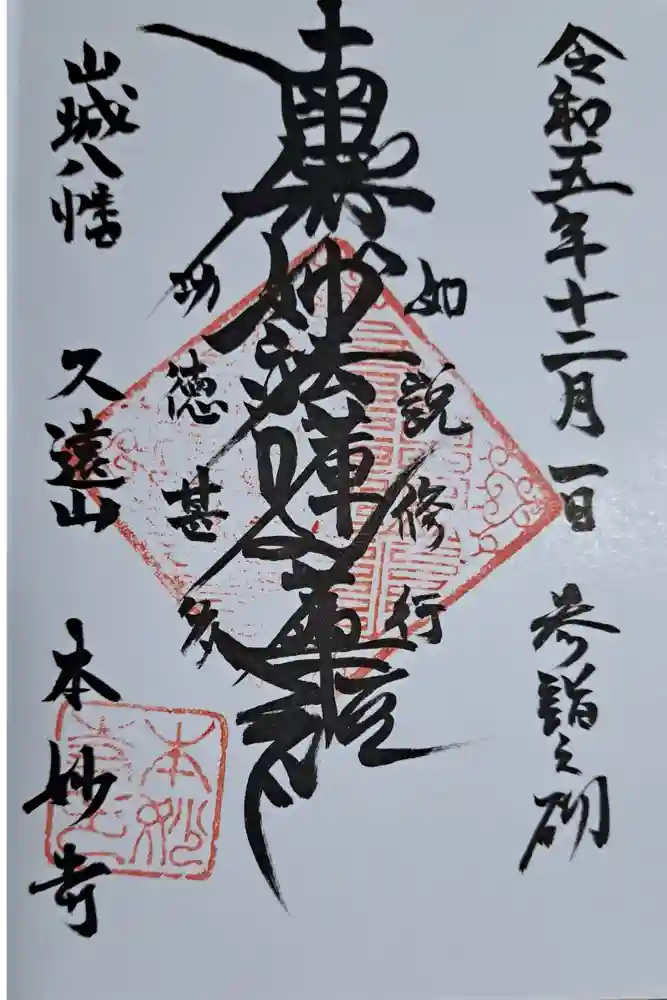 令和五年十二月一日 参詣之砌
如説修行
南無妙法蓮華経
功徳甚多
山城八幡 久遠山 本妙寺
本妙